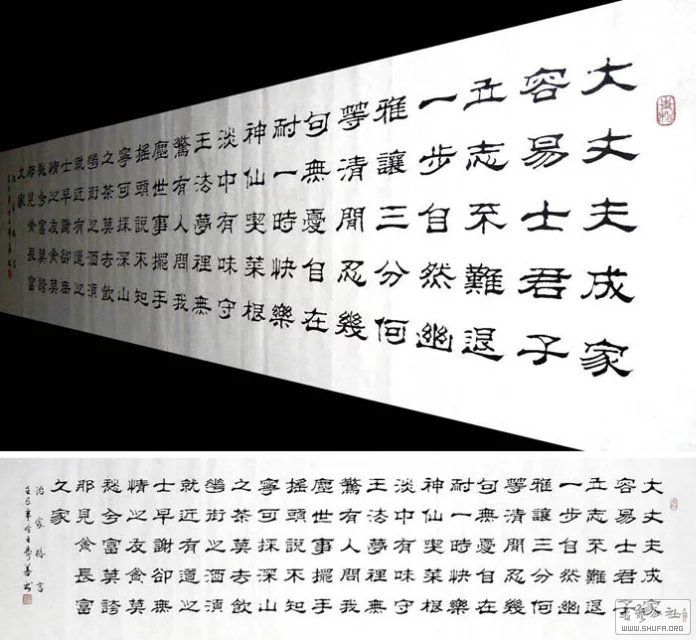 大丈夫成家
容易士君子
立志不難退
一步自然幽
雅讓三分何
等清閒忍幾
句無憂自在
耐一時快樂
神仙喫菜根
淡中有味守
王法夢裡無
驚有人問我
塵世事擺手
搖頭說不知
寧可採深山
之茶莫去飲
華街之酒須
就近有道之
士早謝卻無
情之友貪莫
愁兮富莫誇
那見貪長富
久家
大丈夫成家
容易士君子
立志不難退
一步自然幽
雅讓三分何
等清閒忍幾
句無憂自在
耐一時快樂
神仙喫菜根
淡中有味守
王法夢裡無
驚有人問我
塵世事擺手
搖頭說不知
寧可採深山
之茶莫去飲
華街之酒須
就近有道之
士早謝卻無
情之友貪莫
愁兮富莫誇
那見貪長富
久家
治家格言
WWW.SHUFA.ORG